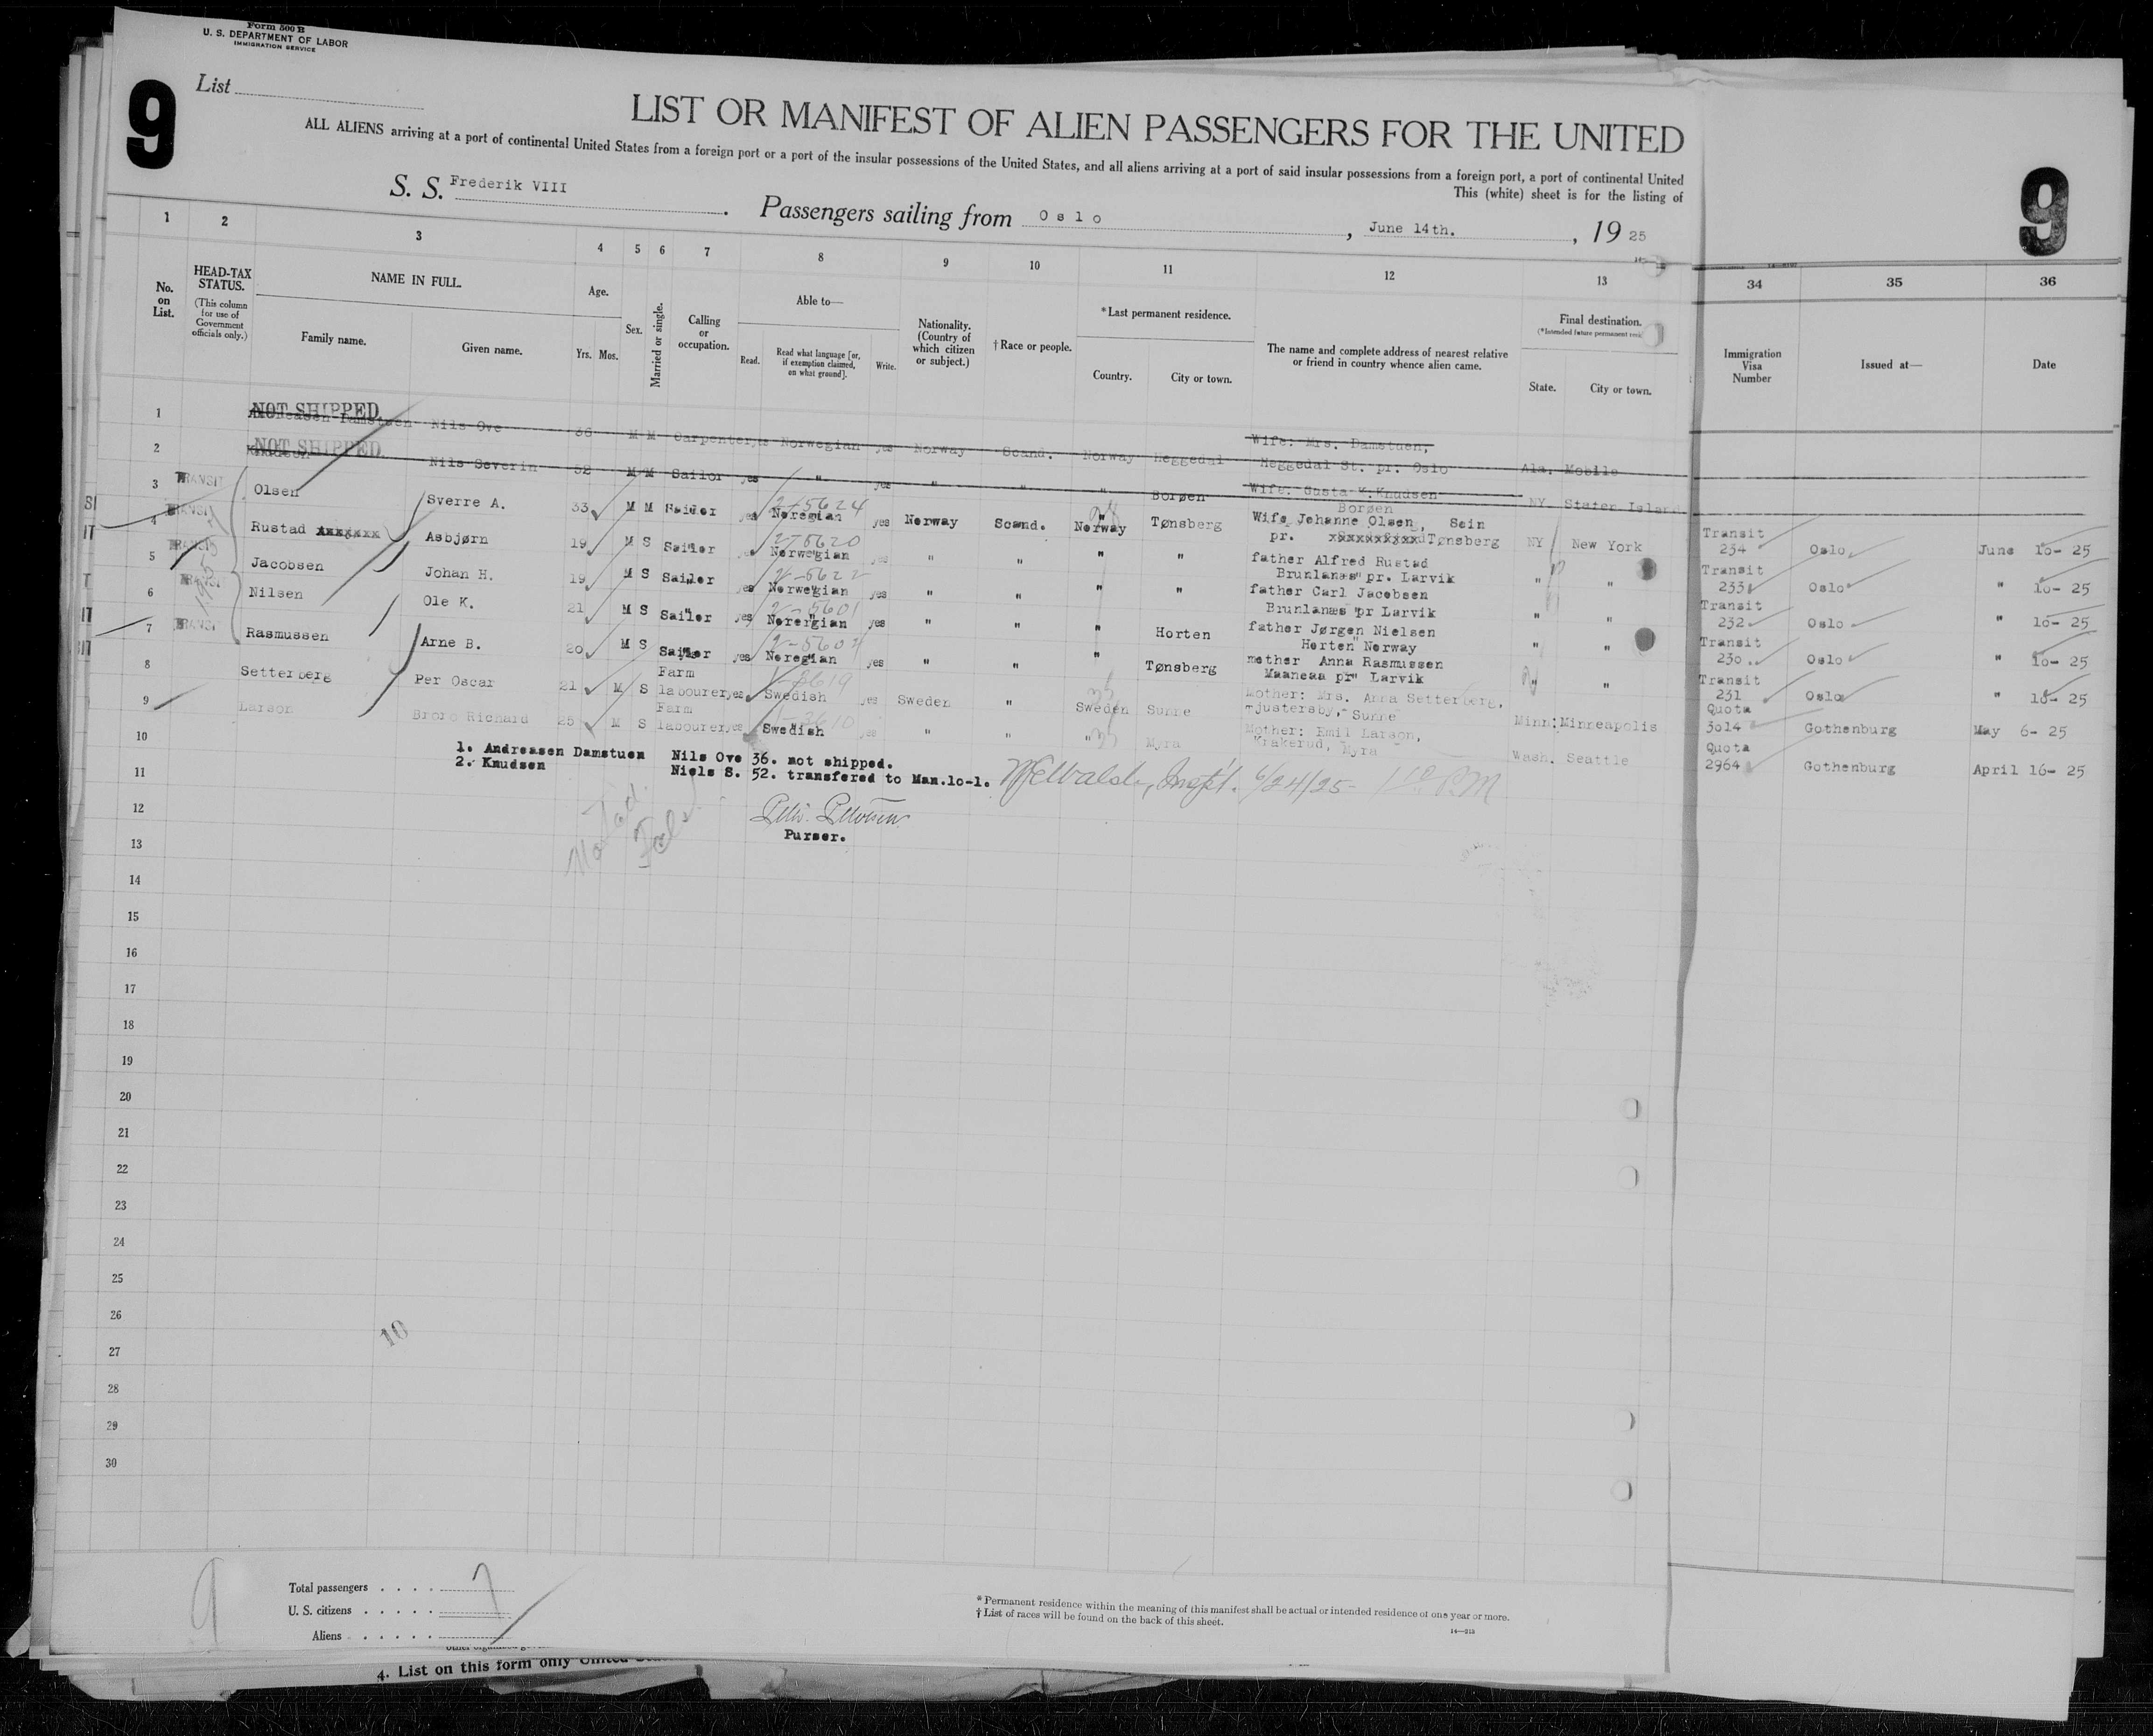 Form 500 B
U. S. DEPARTMENT OF LABOR
IMMIGRATION SERVICE
9
List
LIST OR MANIFEST OF ALIEN PASSENGERS FOR THE UNITED
ALL ALIENS arriving at a port of continental United States from a foreign port or a port of the insular possessions of the United States, and all aliens arriving at a port of said insular possessions from a foreign port, a port of continental United
This (white) sheet is for the listing of
S. S. Frederik VIII
Passengers sailing from Oslo, June 14th., 1925
9
1 2 3 4 5 6 7 8 9 10 11 12 13 34 35 36
No. on List.
HEAD-TAX STATUS.
(This column for use of Government officials only.)
NAME IN FULL.
Family name. Given name.
Age.
Yrs. Mos.
Sex.
Married or single.
Calling or occupation.
Able to—
Read. Read what language [or, if exemption claimed, on what ground]. Write.
Nationality. (Country of which citizen or subject.)
† Race or people.
*Last permanent residence.
Country. City or town.
The name and complete address of nearest relative or friend in country whence alien came.
Final destination.
State. City or town.
Immigration Visa Number
Issued at—
Date
1 NOT SHIPPED Nils Ove 36 M M Carpenter yes Norwegian yes Norway Scand. Norway Heggedal Wife: Mrs. Damstuen, Heggedal St. pr. Oslo Ala. Mobile
2 NOT SHIPPED Knudsen Nils Severin 52 M M Sailor yes " yes " " " Borøen Wife: Gusta K. Knudsen Borøen NY. Staten Island
3 TRANSIT Olsen Sverre A. 33 M M Sailor yes 2-5624 Noregian yes Norway Scand. Norway Tønsberg Wife Johanne Olsen, Sein pr. Tønsberg NY New York Transit 234 Oslo June 10- 25
4 TRANSIT Rustad Asbjørn 19 M S Sailer 2-5620 Norwegian yes " " " " father Alfred Rustad Brunlanæs pr. Larvik " " Transit 233 Oslo " 10- 25
5 TRANSIT Jacobsen Johan H. 19 M S Sailer yes 2-5622 Norwegian yes " " " " father Carl Jacobsen Brunlanæs pr Larvik " " Transit 232 Oslo " 10- 25
6 TRANSIT Nilsen Ole K. 21 M S Sailer yes 2-5601 Norergian yes " " " Horten father Jørgen Nielsen Horten Norway " " Transit 230 Oslo " 10- 25
7 TRANSIT Rasmussen Arne B. 20 M S Sailer yes Noregian yes " " " Tønsberg mother Anna Rasmussen Maaneaa pr Larvik " " Transit 231 Oslo " 10- 25
8 Setterberg Per Oscar 21 M S Farm labourer yes Swedish yes Sweden " Sweden Sunne Mother: Mrs. Anna Setterberg, Sunne Minn: Minneapolis Quota 3014 Gothenburg May 6- 25
9 Larson Broro Richard 25 M S Farm labourer yes Swedish yes " " " Myra Mother: Emil Larson, Krakerud, Myra Wash. Seattle Quota 2964 Gothenburg April 16- 25
10 1. Andreasen Damstuen Nils Ove 36. not shipped.
11 2. Knudsen Niels S. 52. transfered to Man.10-1. 6/24/25
12
Purser.
13
14
15
16
17
18
19
20
21
22
23
24
25
26
10
27
28
29
30
9
Total passengers 7
U. S. citizens
Aliens
* Permanent residence within the meaning of this manifest shall be actual or intended residence of one year or more.
† List of races will be found on the back of this sheet.
14—213
4. List on this form only United